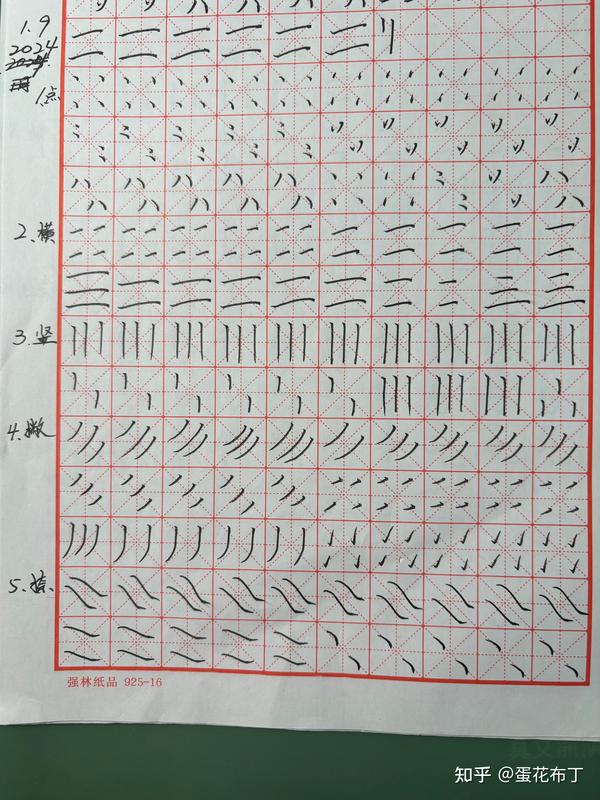 1.9
2024
1点
2、横
3、竖
4、撇
5、捺、
强林纸品 925-16
知乎 @蛋花布丁